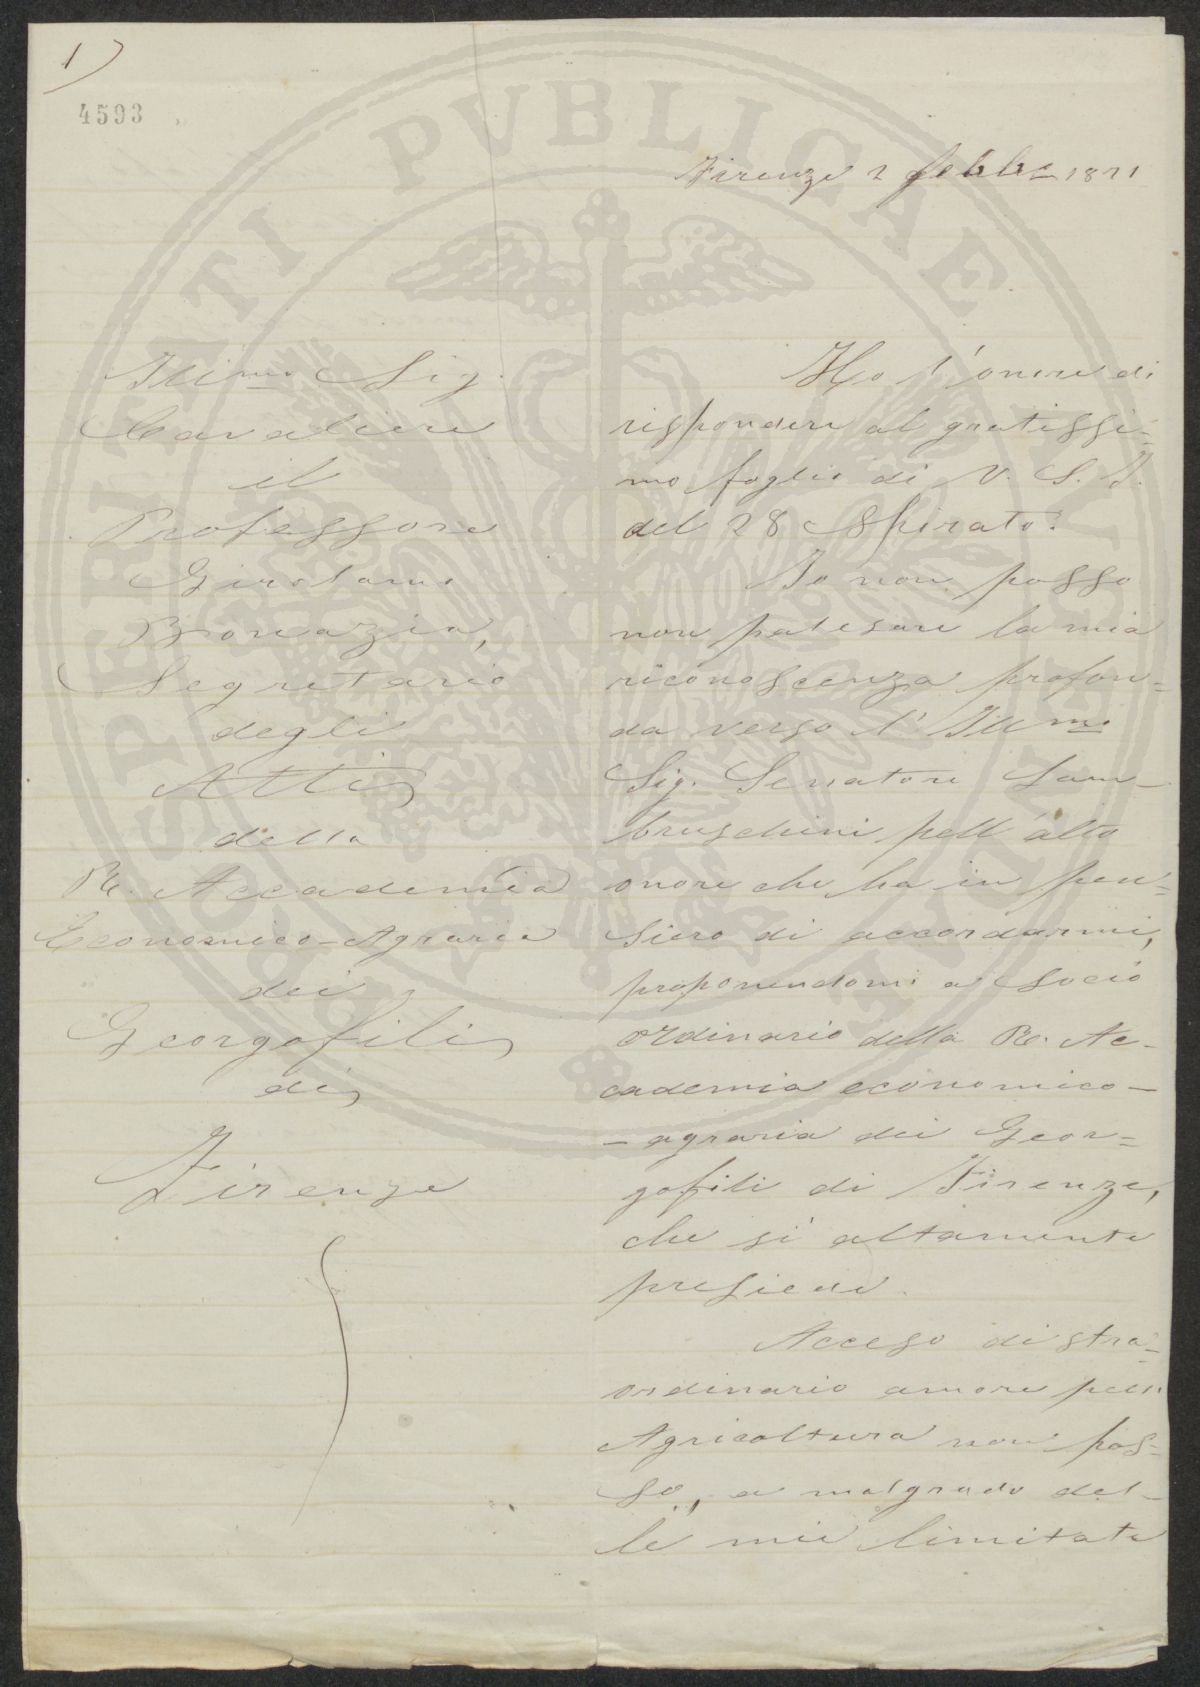 1)
4593
Firenze 2 febbre 1871
Illmo Sig.
Cavaliere
il
Professore
Girolamo
Segretario
degli
Atti
della
R. Accademia
Economico-Agraria
dei
Georgofili
di
Firenze
Ho l'onore di
rispondere al gratissi=
mo foglio di V. S. I.
del 28 Spirato.
Io non posso
non palesare la mia
riconoscenza profon=
da verso l'Illmo
Sig. Senatore Lam-
bruschini pell'alto
onore che ha in pen=
siero di accordarmi,
proponendomi a Socio
ordinario della R. Ac-
cademia economico-
-agraria dei Geor=
gofili di Firenze,
che sì altamente
presiede.
Acceso di stra-
ordinario amore pell'
Agricoltura non pos-
so, a malgrado del-
le mie limitate
PROSPERITATI PVBLICAE AVGENDAE